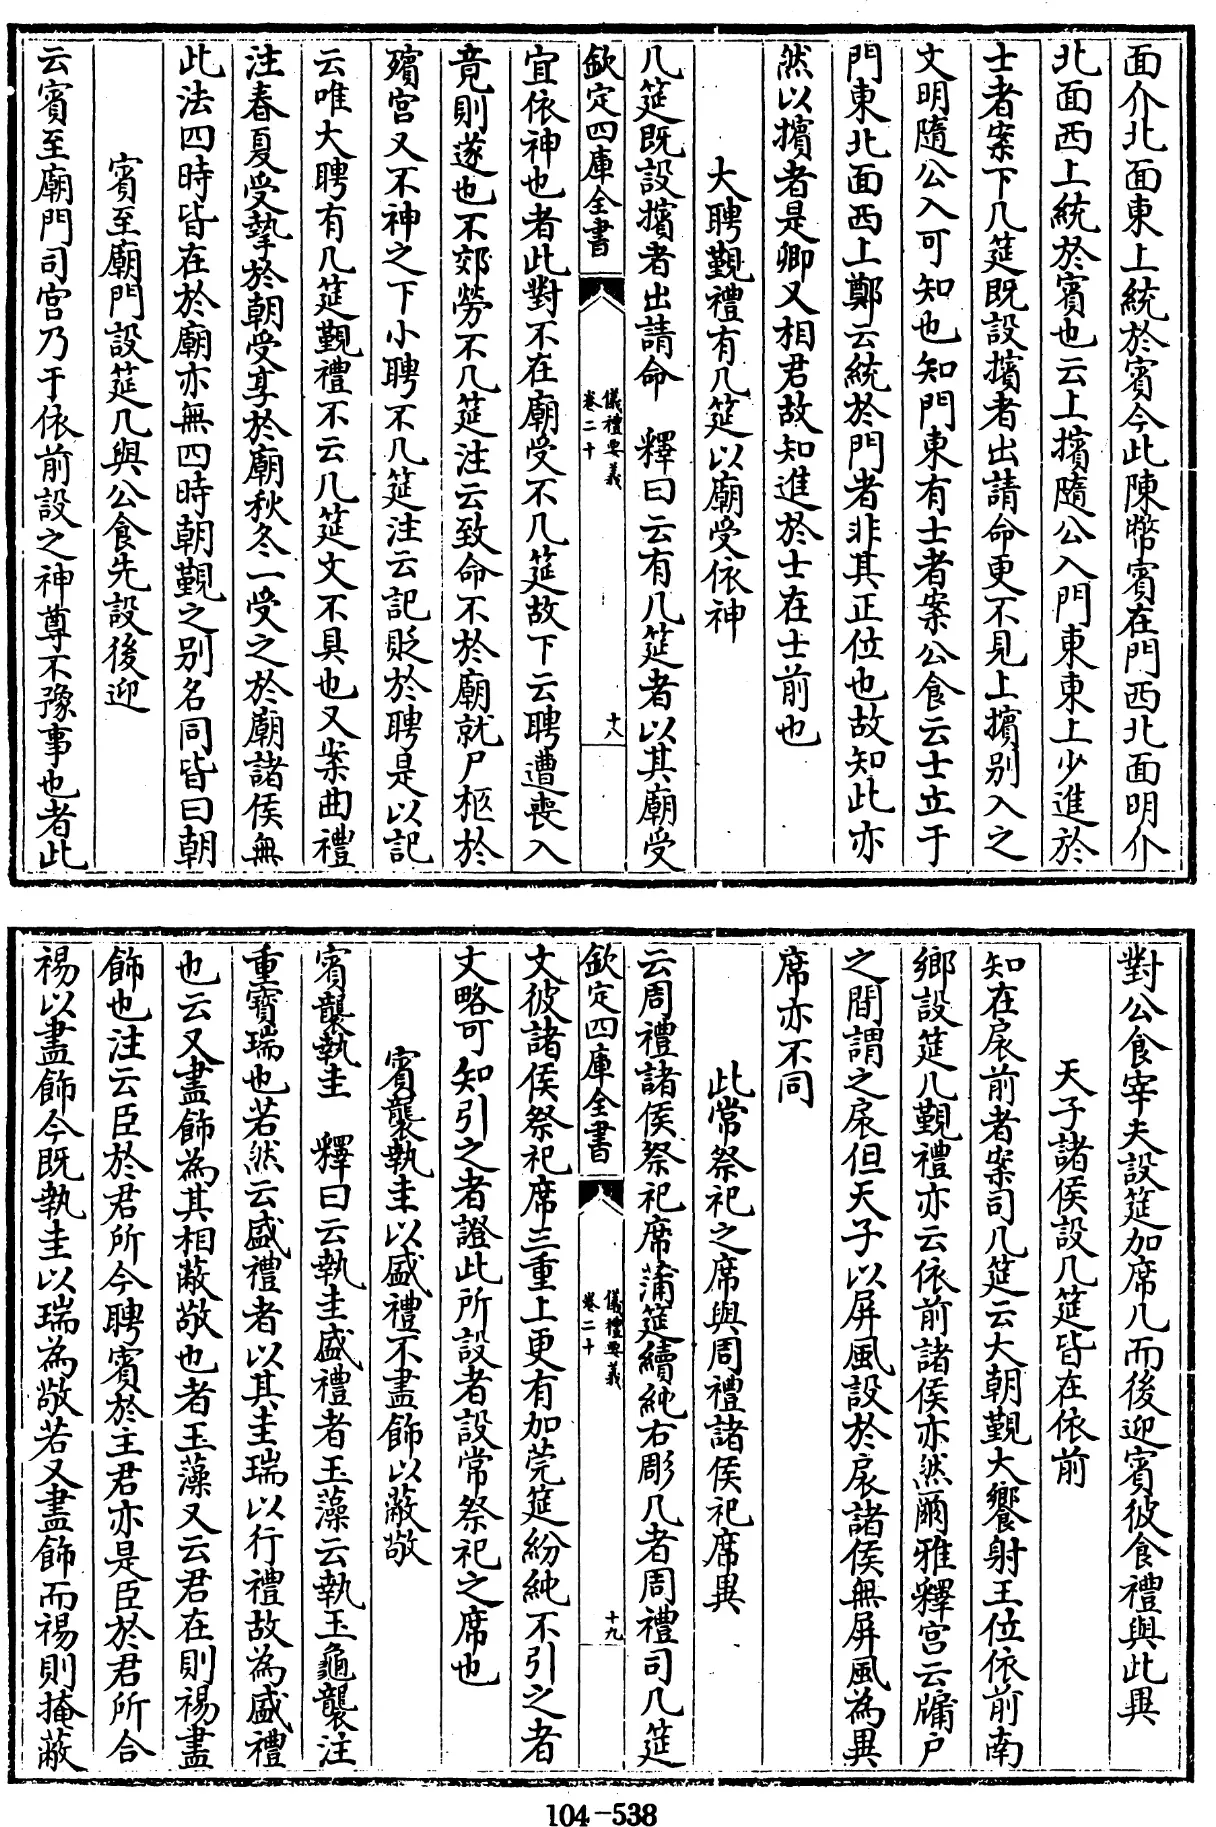 面介北面東上統於賓今此陳幣賓在門西北面明介
北面西上統於賓也云上擯隨公入門東東上少進於
士者案下几筵既設擯者出請命更不見上擯别入之
文明隨公入可知也知門東有士者案公食云士立于
門東北面西上鄭云統於門者非其正位也故知此亦
然以擯者是卿又相君故知進於士在士前也
大聘覲禮有几筵以廟受依神
几筵既設擯者出請命　釋曰云有几筵者以其廟受
欽定四庫全書　儀禮要義　卷二十　十八
宜依神也者此對不在廟受不几筵故下云聘遭喪入
竟則遂也不郊勞不几筵注云致命不於廟就尸柩於
殯宫又不神之下小聘不几筵注云記貶於聘是以記
云唯大聘有几筵覲禮不云几筵文不具也又案曲禮
注春夏受摯於朝受享於廟秋冬一受之於廟諸侯無
此法四時皆在於廟亦無四時朝覲之别名同皆曰朝
賓至廟門設筵几與公食先設後迎
云賓至廟門司宫乃于依前設之神尊不豫事也者此
對公食宰夫設筵加席几而後迎賓彼食禮與此異
天子諸侯設几筵皆在依前
知在扆前者案司几筵云大朝覲大饗射王位依前南
鄉設筵几覲禮亦云依前諸侯亦然爾雅釋宫云牖户
之間謂之扆但天子以屏風設於扆諸侯無屏風為異
席亦不同
此常祭祀之席與周禮諸侯祀席異
云周禮諸侯祭祀席蒲筵繢純右彫几者周禮司几筵
欽定四庫全書　儀禮要義　卷二十　十九
文彼諸侯祭祀席三重上更有加莞筵紛純不引之者
文略可知引之者證此所設者設常祭祀之席也
賓襲執圭以盛禮不盡飾以蔽敬
賓襲執圭　釋曰云執圭盛禮者玉藻云執玉龜襲注
重寶瑞也若然云盛禮者以其圭瑞以行禮故為盛禮
也云又盡飾為其相蔽敬也者玉藻又云君在則裼盡
飾也注云臣於君所今聘賓於主君亦是臣於君所合
裼以盡飾今既執圭以瑞為敬若又盡飾而裼則掩蔽
104-538